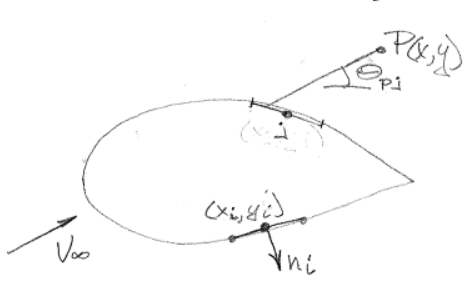 P(x,y)
θpj
j
(xi,yi)
V∞
ni